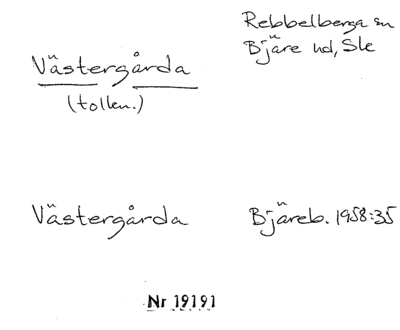 Rebbelberga sn
Västergårda
Bjäre hd, Ske
(tollen.)
Västergårda
Bjäreb. 1958:35
Nr 19191